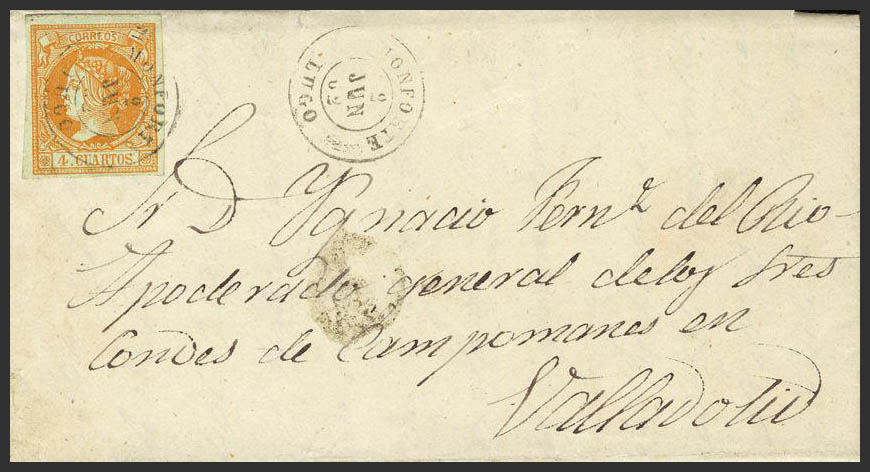 CORREOS
4. CUARTOS.
MONFORTE
JUN
LUGO
Sr D Ygnacio Fernz del Rio
Apoderado general delos Sres
Condes de Campomanes en
Valladolid